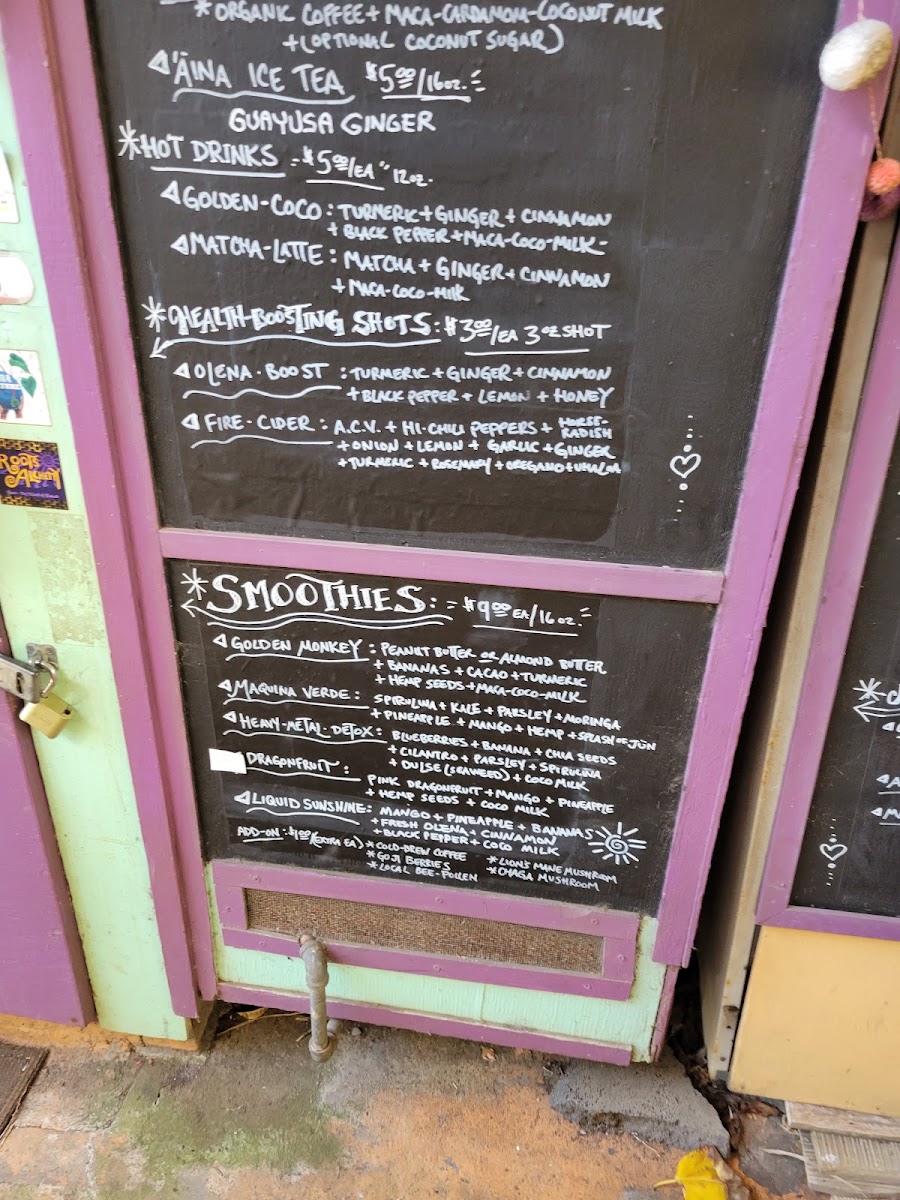 *ORGANIC COFFEE + MACA-CARDAMOM-COCONUT MILK
+(OPTIONAL COCONUT SUGAR)
'ĀINA ICE TEA $5.00/16oz.
GUAYUSA GINGER
*HOT DRINKS = $5.00/EA " 12oz.
GOLDEN-COCO: TURMERIC + GINGER + CINNAMON
+ BLACK PEPPER + MACA-COCO-MILK-
MATCHA-LATTE: MATCHA + GINGER + CINNAMON
+ MACA-COCO-MILK
*HEALTH-BOOSTING SHOTS: $3.00/EA 3oz SHOT
OLENA-BOOST: TURMERIC + GINGER + CINNAMON
+ BLACK PEPPER + LEMON + HONEY
FIRE-CIDER: A.C.V. + HI-CHILI PEPPERS + HORSE-
RADISH
+ ONION + LEMON + GARLIC + GINGER
+ TURMERIC + ROSEMARY + OREGANO +
*SMOOTHIES: = $9.00 EA/16oz.
GOLDEN MONKEY: PEANUT BUTTER OR ALMOND BUTTER
+ BANANAS + CACAO + TURMERIC
+ HEMP SEEDS + MACA-COCO-MILK
MAQUINA VERDE: SPIRULINA + KALE + PARSLEY + MORINGA
+ PINEAPPLE + MANGO + HEMP + SPLASH OF JÜN
HEAVY-METAL-DETOX: BLUEBERRIES + BANANA + CHIA SEEDS
+ CILANTRO + PARSLEY + SPIRULINA
+ DULSE (SEAWEED) + COCO MILK
DRAGONFRUIT: PINK DRAGONFRUIT + MANGO + PINEAPPLE
+ HEMP SEEDS + COCO MILK
LIQUID SUNSHINE: MANGO + PINEAPPLE + BANANAS
+ FRESH OLENA + CINNAMON
+ BLACK PEPPER + COCO MILK
ADD-ON: $1.00 (EXTRA EA) *COLD-BREW COFFEE *LION'S MANE MUSHROOM
*GOJI BERRIES *CHAGA MUSHROOM
*LOCAL BEE-POLLEN
ROOTS